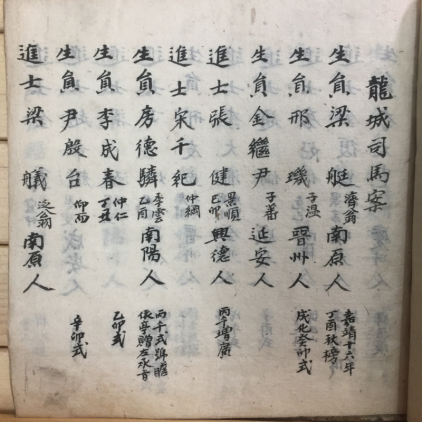 龍城司馬案
生員梁艇 濟翁 南原人 嘉靖十六年丁酉秋榜
生員邢璣 子溫 晉州人 成化癸卯式
生員金繼尹 子蕃 延安人
進士張健 景順 己卯 興德人 丙午增廣
進士宋千紀 仲綱
生員房德驎 季雲 乙酉 南陽人 丙午式
生員李成春 仲仁 丁丑 乙卯式
生員尹殷台 仰而 辛卯式
進士梁艤 泛翁 南原人